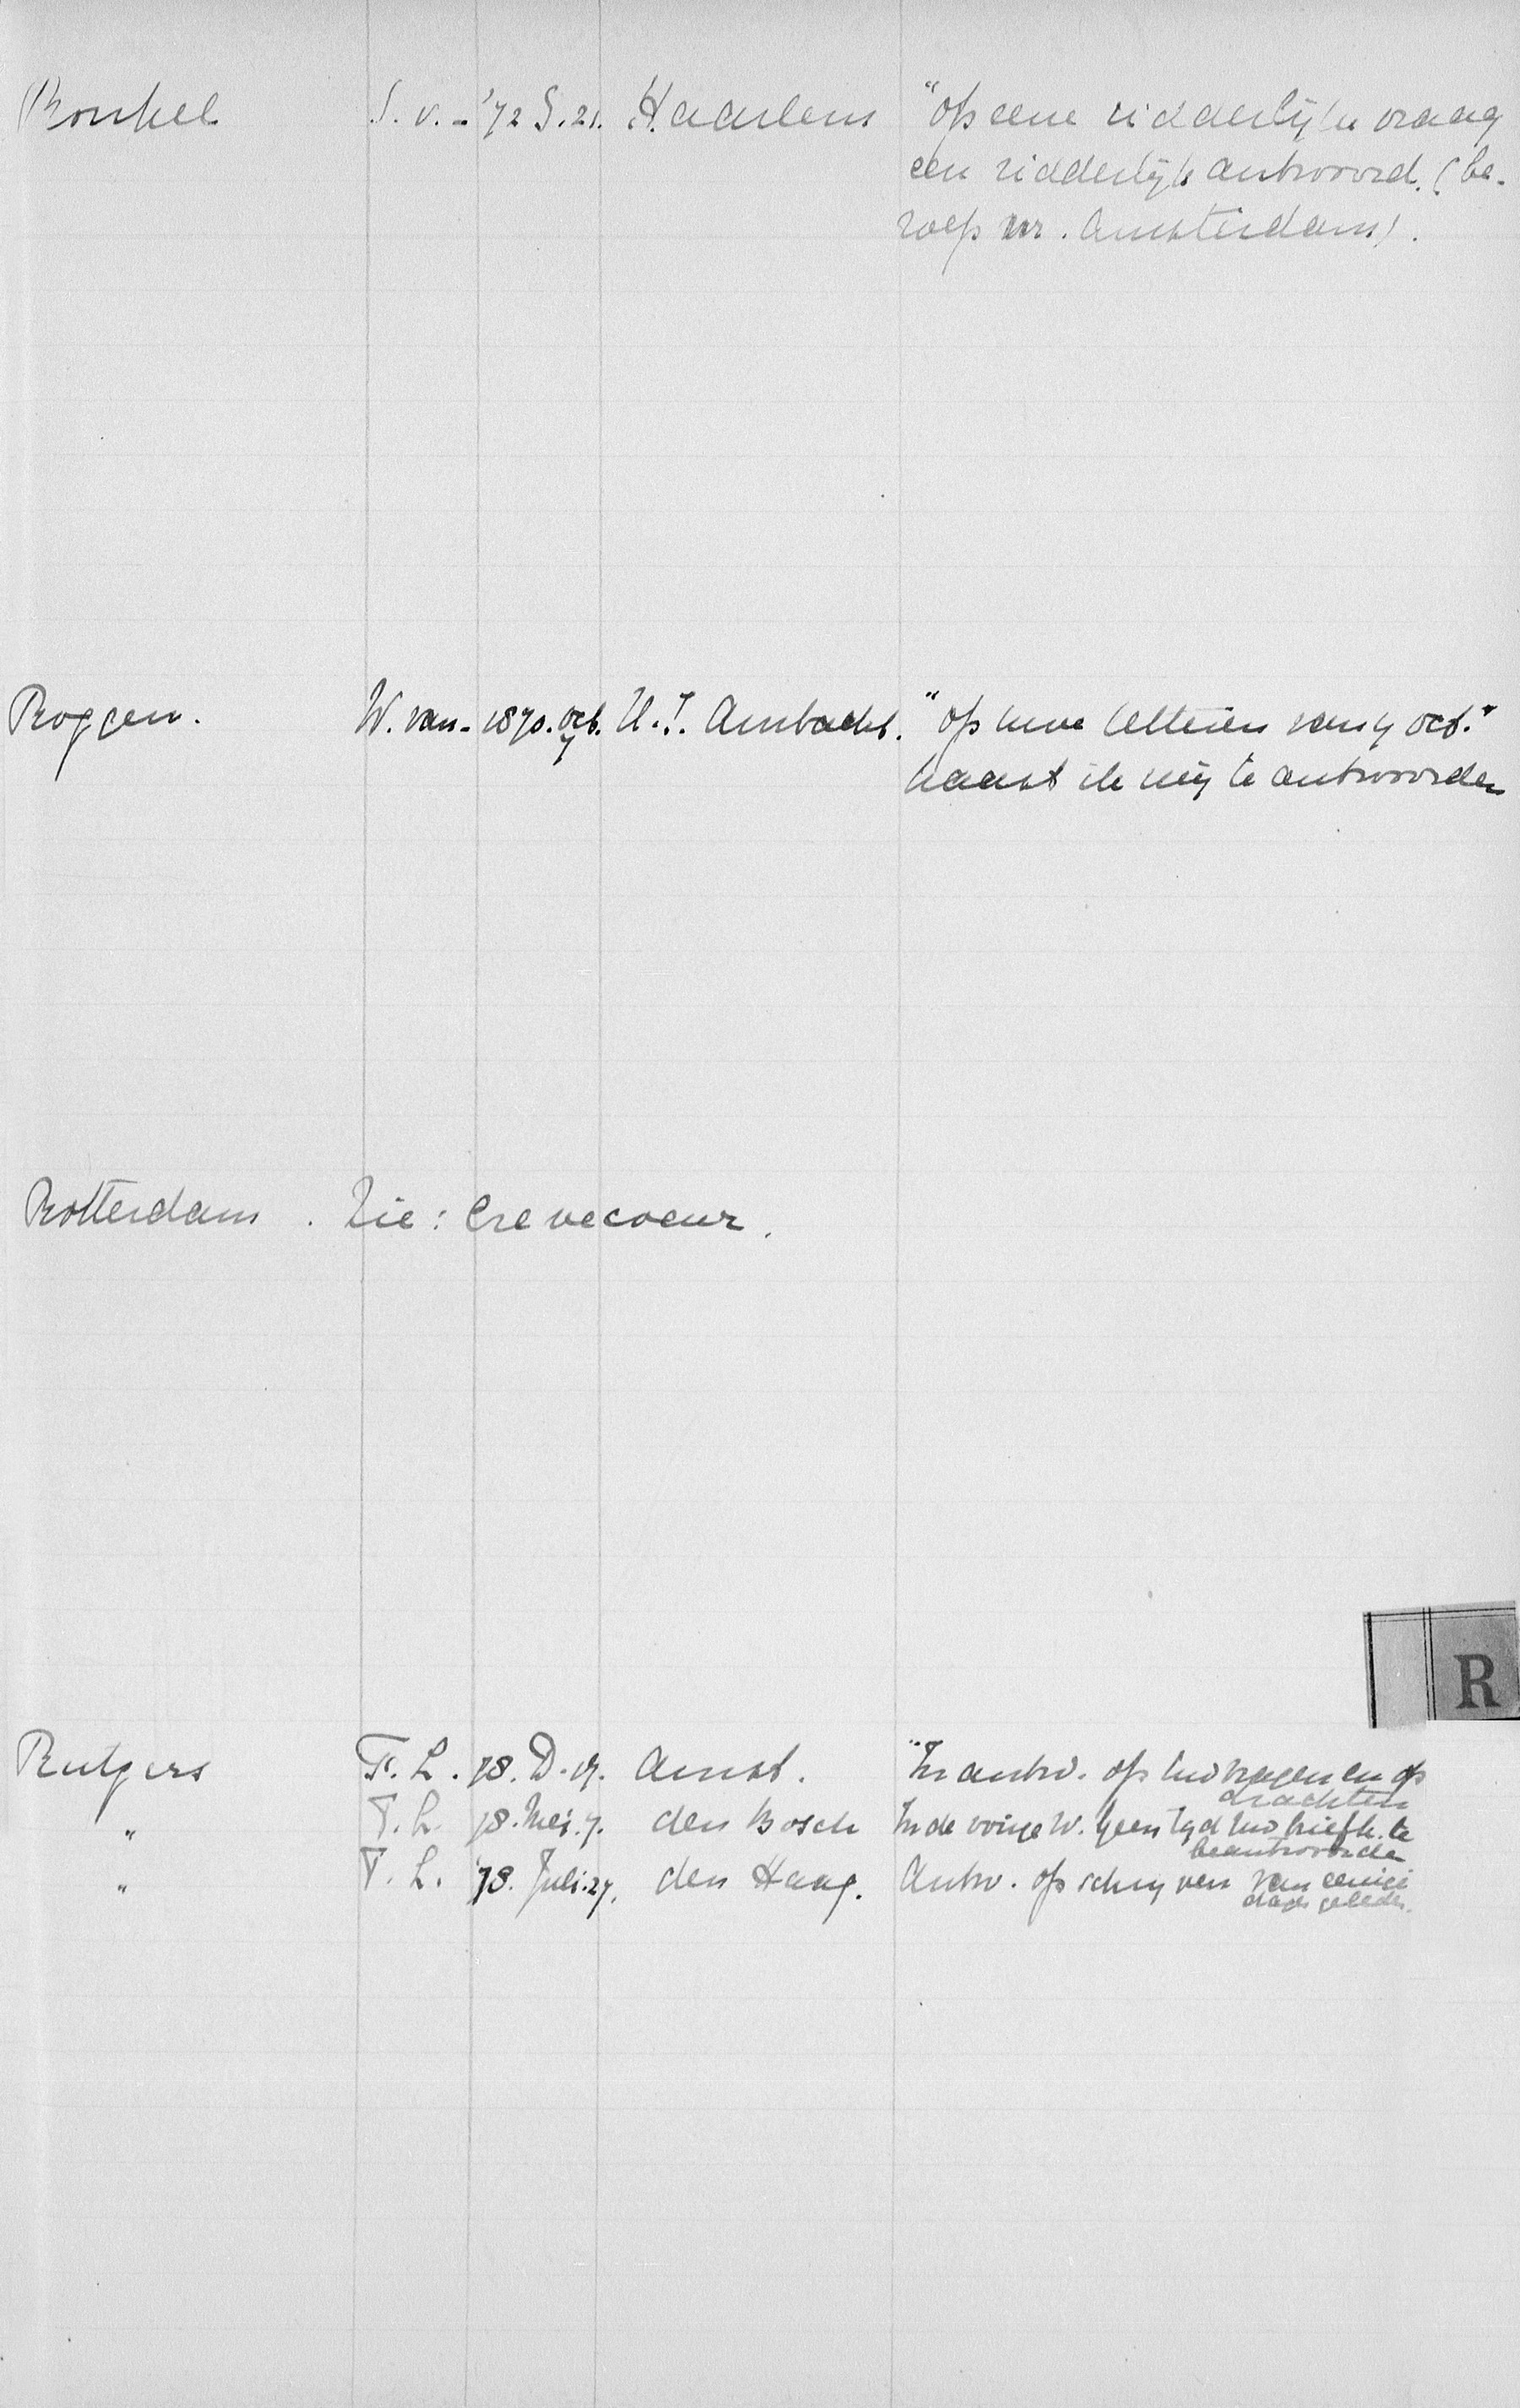 Ronkel S. v. - '72 S. 21. Haarlem "op eene ridderlijke vraag
een ridderlijk antwoord. (be-
roep nr. Amsterdam).
Roggen. W. van - 1870. Oct. 7 H. I. Ambacht. "op uwe letteren van 4 oct."
haast ik mij te antwoorden
Rotterdam. Zie: Crevecoeur.
R
Rutgers F. L. 78. D. 17. Amst. "In antw. op uw vragen en op
drachten
" F. L. 78. Mei. 7. den Bosch In de vorige W. geen tijd uw briefk. te
beantwoorden
" F. L. 78. Juli. 27. den Haag. Antw. op schrijven van eenige
dagen geleden.